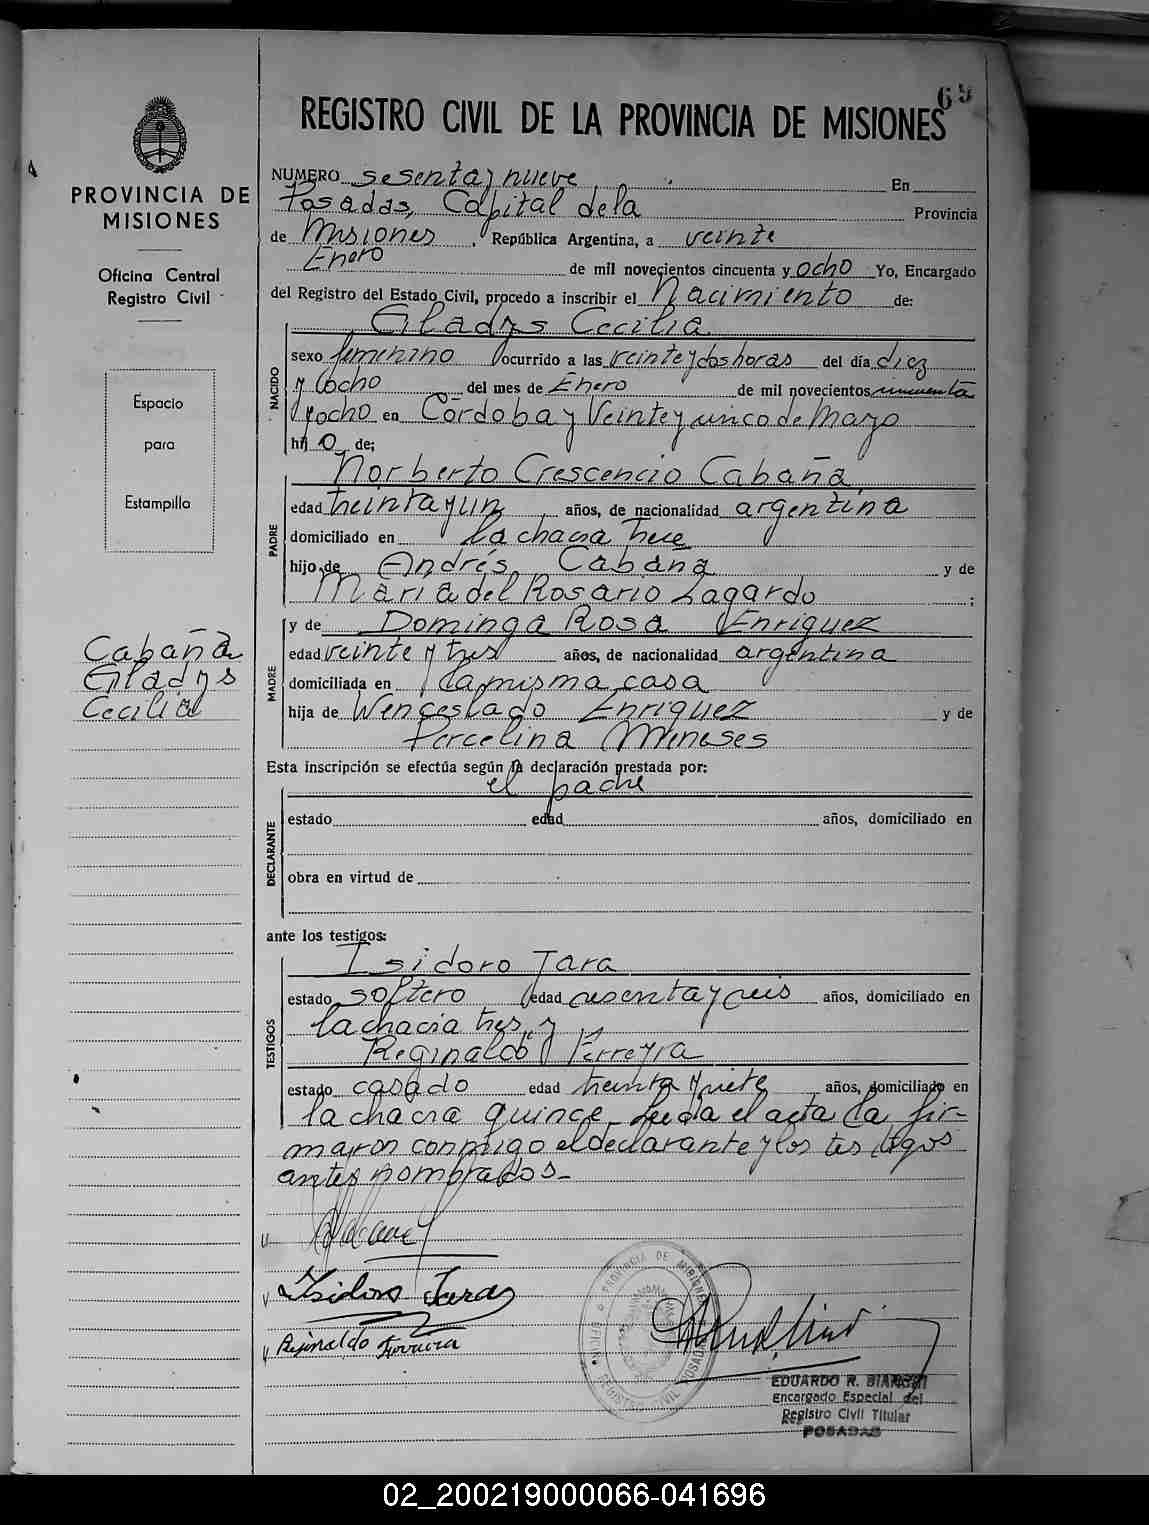 69
REGISTRO CIVIL DE LA PROVINCIA DE MISIONES
PROVINCIA DE
MISIONES
Oficina Central
Registro Civil
Espacio
para
Estampilla
Cabaña
Gladys
Cecilia
NUMERO sesenta y nueve En
Posadas, Capital de la Provincia
de Misiones, República Argentina, a veinte
Enero de mil novecientos cincuenta y ocho Yo, Encargado
del Registro del Estado Civil, procedo a inscribir el Nacimiento de:
Gladys Cecilia
NACIDO
sexo femenino ocurrido a las veinte y dos horas del día diez
y ocho del mes de Enero de mil novecientos cincuenta
y ocho en Córdoba y Veinte y cinco de Mayo
hijo de;
Norberto Crescencio Cabaña
PADRE
edad treinta y un años, de nacionalidad argentina
domiciliado en la chacra trece
hijo de Andrés Cabaña y de
María del Rosario Lagardo;
y de Dominga Rosa Enriquez
MADRE
edad veinte y tres años, de nacionalidad argentina
domiciliada en la misma casa
hija de Wenceslado Enriquez y de
Percelina Meneses
Esta inscripción se efectúa según la declaración prestada por:
el padre
DECLARANTE
estado edad años, domiciliado en
obra en virtud de
ante los testigos:
Isidoro Jara
TESTIGOS
estado soltero edad sesenta y seis años, domiciliado en
la chacra tres y
Reginaldo Ferreyra
estado casado edad treinta y siete años, domiciliado en
la chacra quince. Leída el acta la fir-
maron conmigo el declarante y los testigos
antes nombrados.-
Isidoro Jara
Rejinaldo Ferreira
PROVINCIA DE MISIONES
REGISTRO CIVIL POSADAS
EDUARDO R. BIANCHI
Encargado Especial del
Registro Civil Titular
POSADAS
02_200219000066-041696